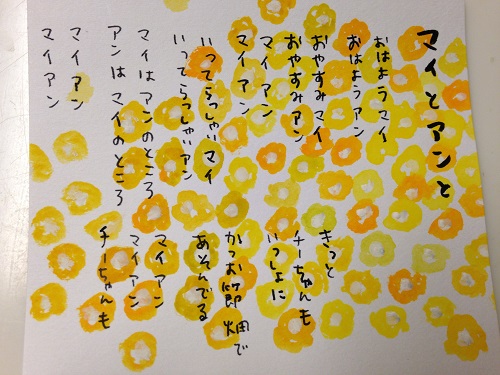 マイとアンと
おはようマイ
おはようアン
おやすみマイ
おやすみアン
マイアン
マイアン
いってらっしゃいマイ
いってらっしゃいアン
マイはアンのところ
アンはマイのところ
マイアン
マイアン
きっと
チーちゃんも
いっしょに
かつお節畑で
あそんでる
マイアン
マイアン
チーちゃんも